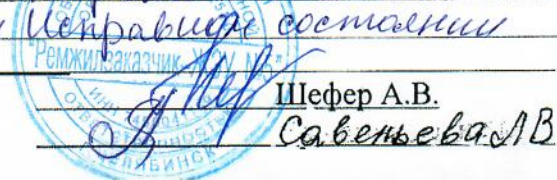 Исправном состоянии
"Ремжилзаказчик ЖЭУ №
Шефер А.В.
Савеньева Л В